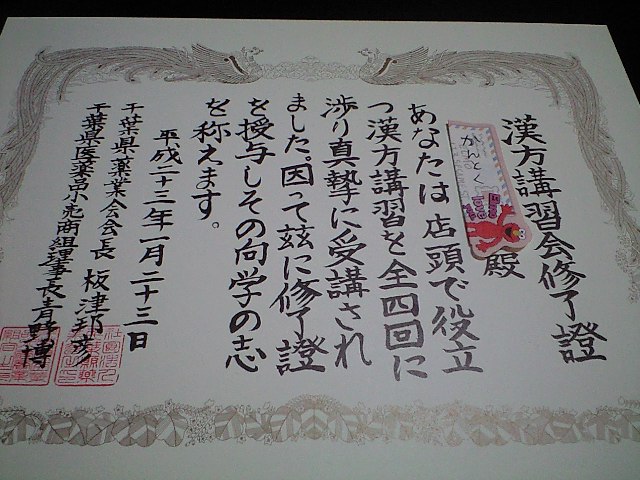 漢方講習会修了證
かんとく
殿
あなたは店頭で役立
つ漢方講習を全四回に
渉り真摯に受講され
ました。因って茲に修了證
を授与しその向学の志
を称えます。
平成二十三年一月二十三日
千葉県薬業会会長 板津邦彦
千葉県医薬品小売商組理事長青野博